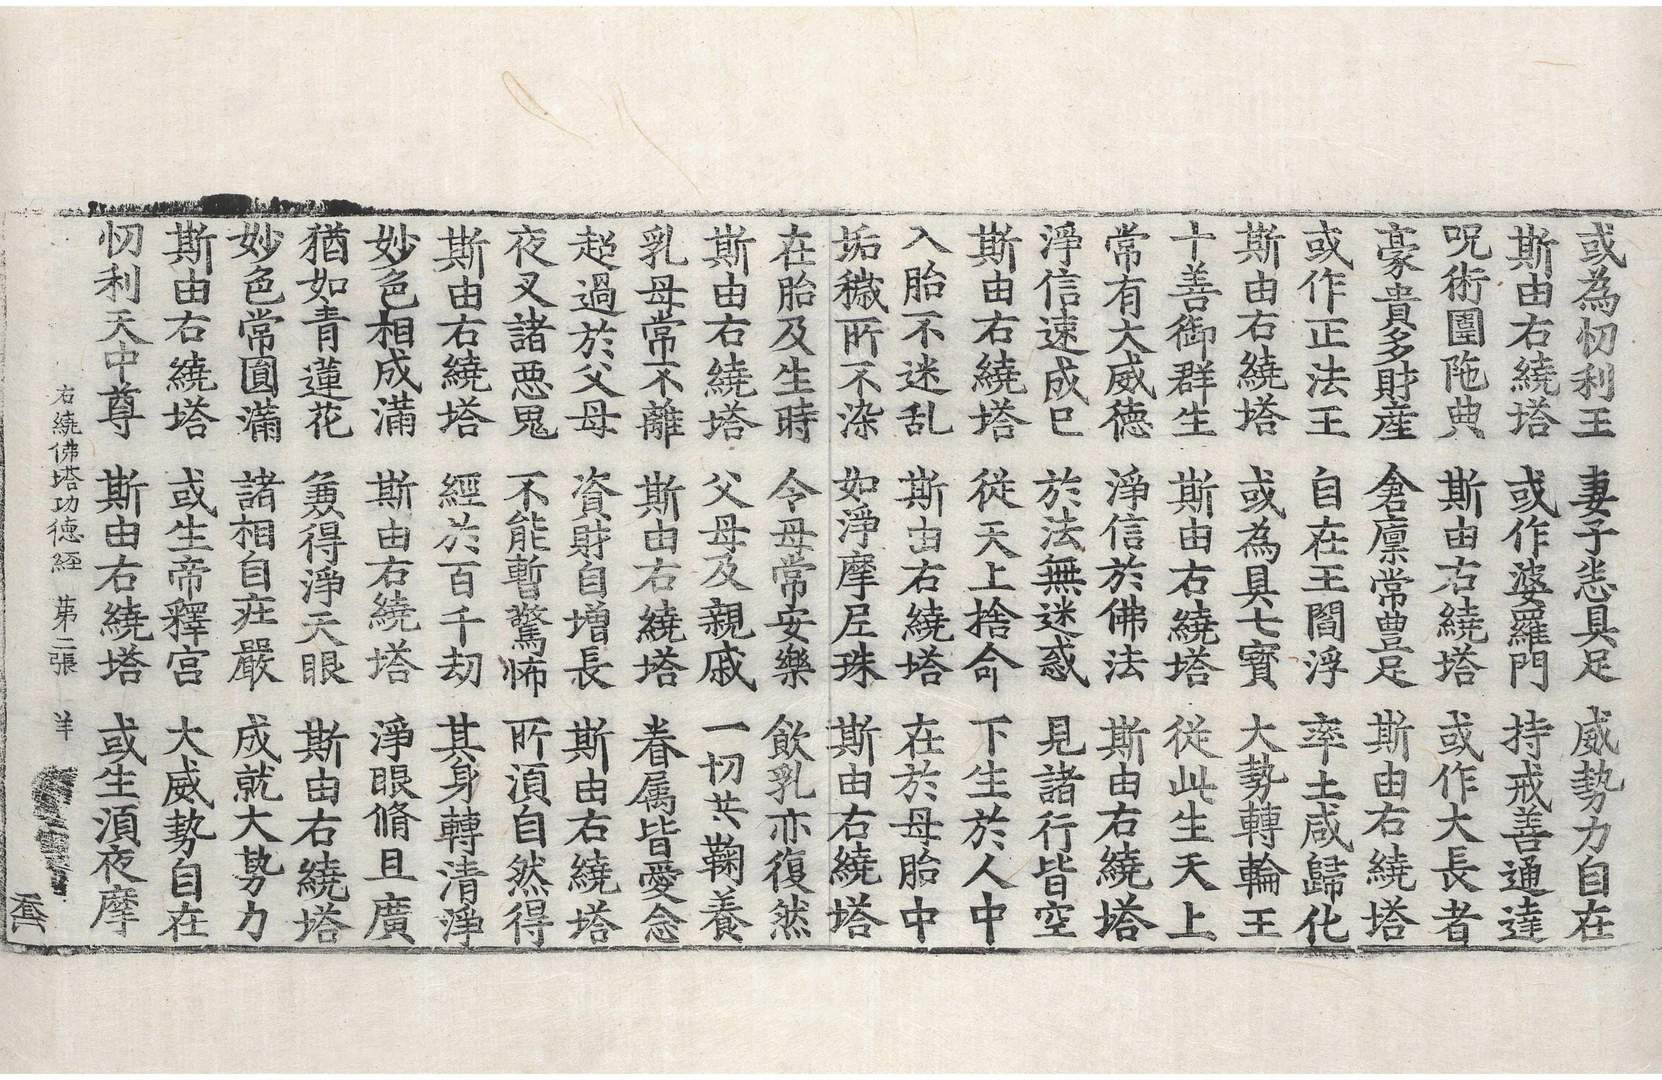 或為忉利王 妻子悉具足 威勢力自在
斯由右繞塔 或作婆羅門 持戒善通達
呪術圍陁典 斯由右繞塔 或作大長者
豪貴多財産 倉廩常豊足 斯由右繞塔
或作正法王 自在王閻浮 率土咸歸化
斯由右繞塔 或為具七寳 大勢轉輪王
十善御群生 斯由右繞塔 從此生天上
常有大威德 淨信於佛法 斯由右繞塔
淨信速成已 於法無迷惑 見諸行皆空
斯由右繞塔 從天上捨命 下生於人中
入胎不迷乱 斯由右繞塔 在於母胎中
垢穢所不染 如淨摩尼珠 斯由右繞塔
在胎及生時 令母常安樂 飲乳亦復然
斯由右繞塔 父母及親戚 一切共鞠養
乳母常不離 斯由右繞塔 眷属皆愛念
超過於父母 資財自增長 斯由右繞塔
夜叉諸惡鬼 不能暫驚怖 所湏自然得
斯由右繞塔 經於百千劫 其身轉清淨
妙色相成滿 斯由右繞塔 淨眼脩且廣
猶如青蓮花 兼得淨天眼 斯由右繞塔
妙色常圓滿 諸相自莊嚴 成就大勢力
斯由右繞塔 或生帝釋宮 大威勢自在
忉利天中尊 斯由右繞塔 或生湏夜摩
右繞佛塔功德經 苐二張 羊